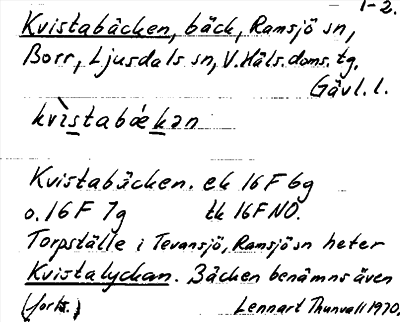 1-2.
Kvistabäcken, bäck, Ramsjö sn,
Borr, Ljusdals sn, V. Häls. doms. tg.
Gävl. l.
kvìstabǽkən
Kvistabäcken. ek 16 F 6g
o. 16 F 7g tk 16F NO.
Torpställe i Tevansjö, Ramsjö sn heter
Kvistalyckan. Bäcken benämns även
(forts.) Lennart Thunvall 1970.